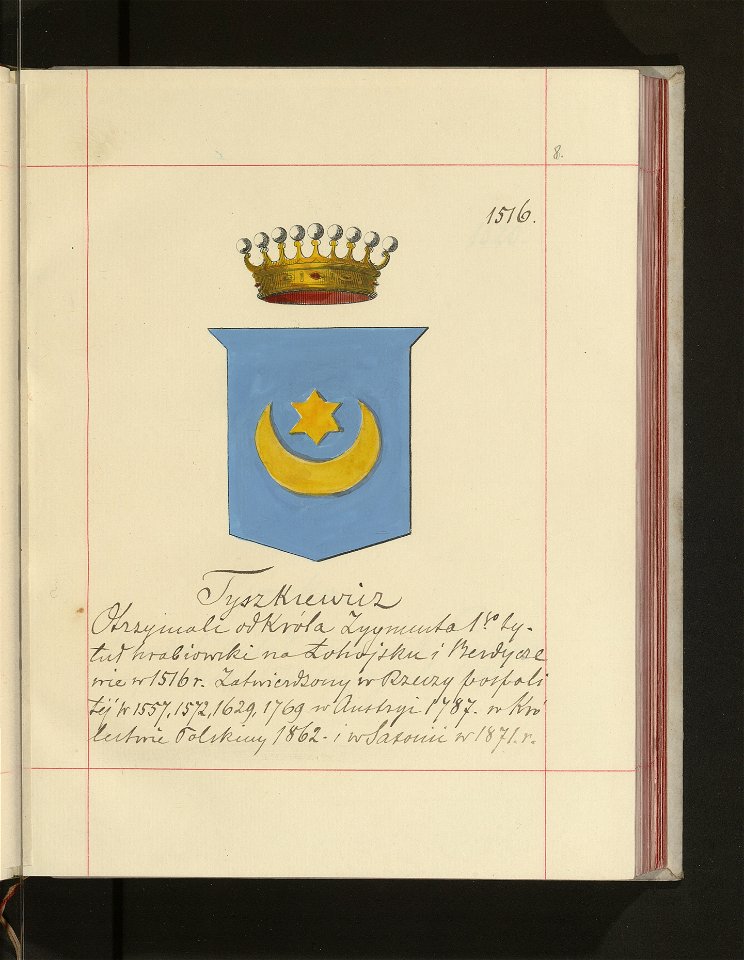 8.
1516.
Tyszkiewicz
Otrzymali od Króla Zygmunta 1go ty-
tuł hrabiowski na Łohojsku i Berdycze
wie w 1516 r. Zatwierdzony w Rzeczy pospoli
tej w 1557, 1572, 1629, 1769 w Austryi 1787. w Kró
lestwie Polskiem 1862. i w Saxonii w 1871. r.